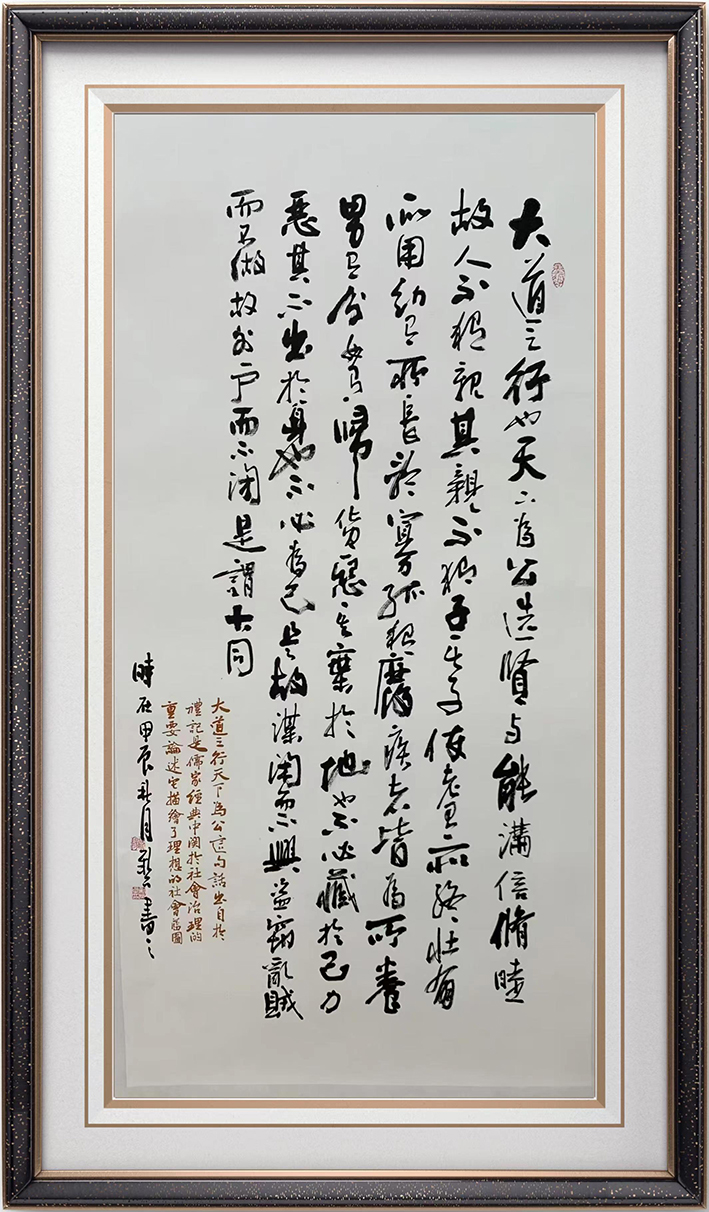 大道之行也天下為公选賢与能講信脩睦
故人不獨親其親不獨子其子使老有所終壮有
所用幼有所長矜寡孤獨廢疾者皆為所養
男有分女有歸貨惡其棄於地也不必藏於己力
惡其不出於身也不必為己是故謀閉而不興盗竊亂賊
而不做故外户而不閉是謂大同
大道之行天下為公這句話出自於
禮記是儒家經典中関於社會治理的
重要論述它描繪了理想的社會藍圖
時在甲辰秋月書之